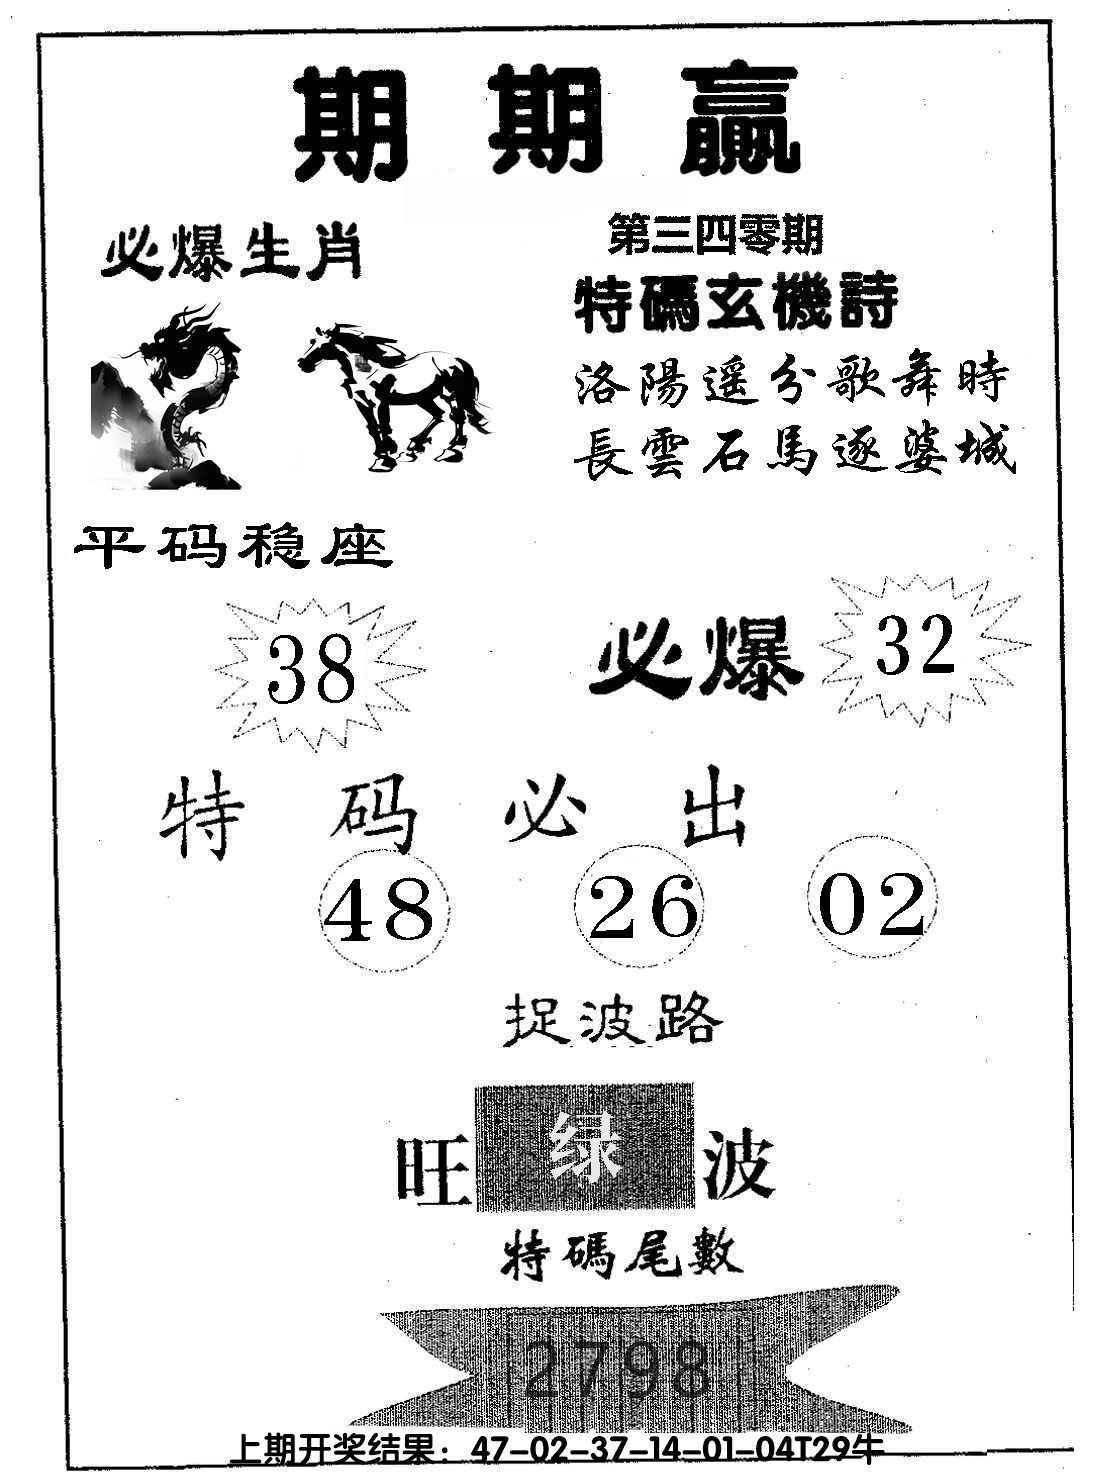 期期赢
必爆生肖
第三四零期
特碼玄機詩
洛陽遥分歌舞時
長雲石馬逐婆城
平码稳座
38
必爆
32
特码必出
48 26 02
捉波路
旺绿波
特碼尾數
2798
上期开奖结果：47-02-37-14-01-04T29牛